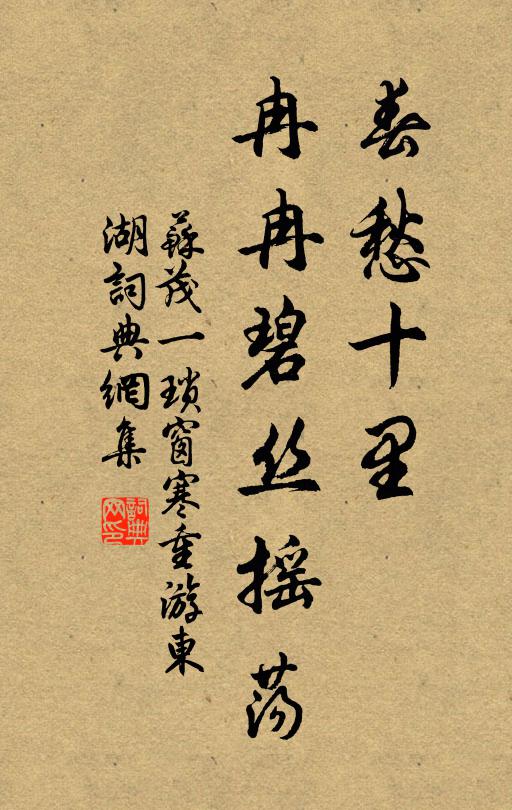 春愁十里
冉冉碧丝摇荡
蘇茂一瑣窗寒重游東
湖詞典網集
詞典网印